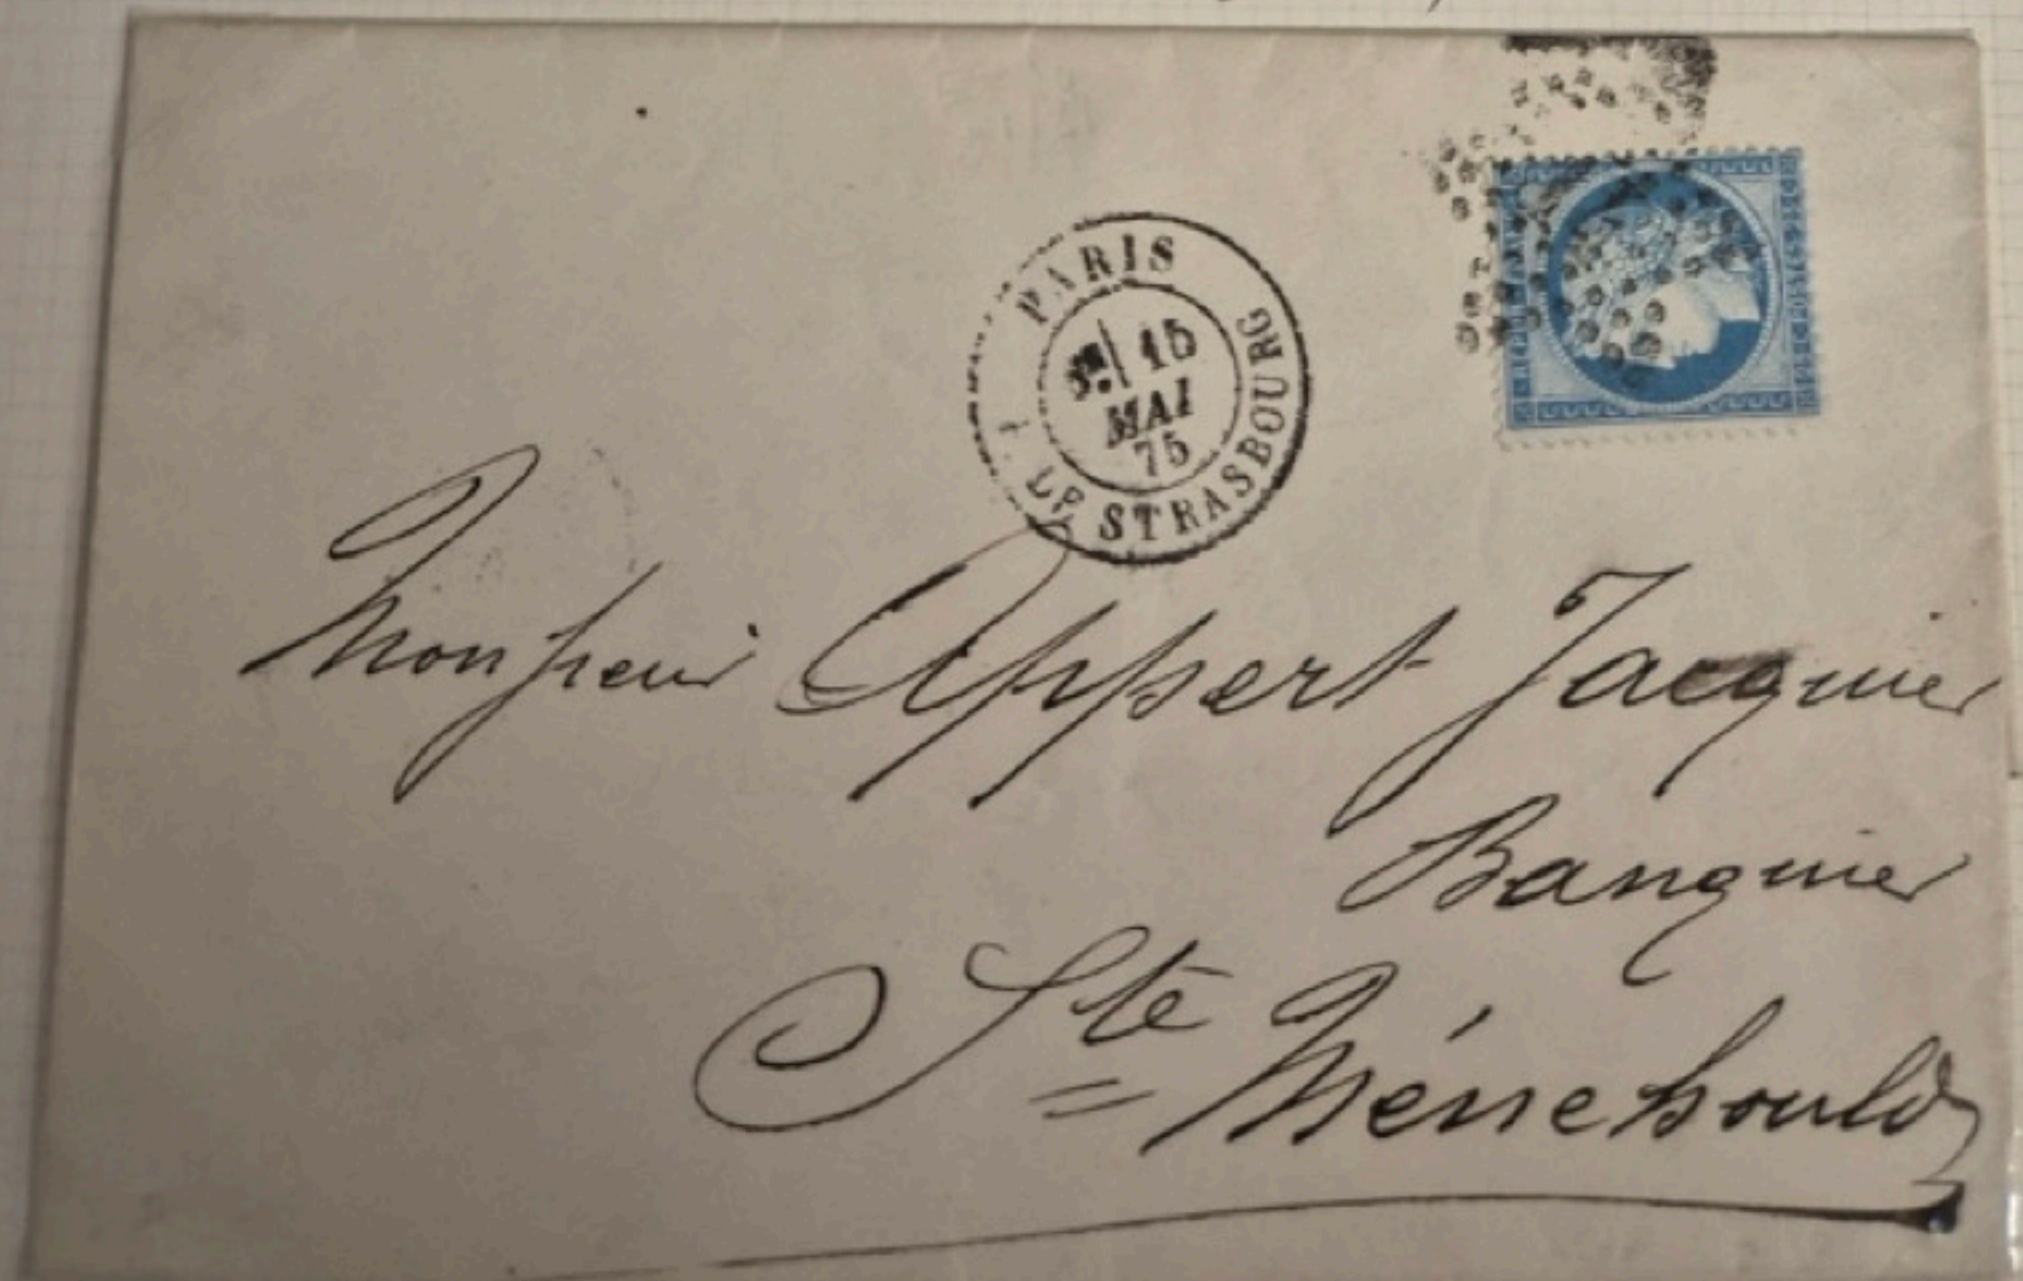 PARIS
15
MAI
75
LP. STRASBOURG
Monsieur Appert Jacquier
Banquier
Ste Ménehould